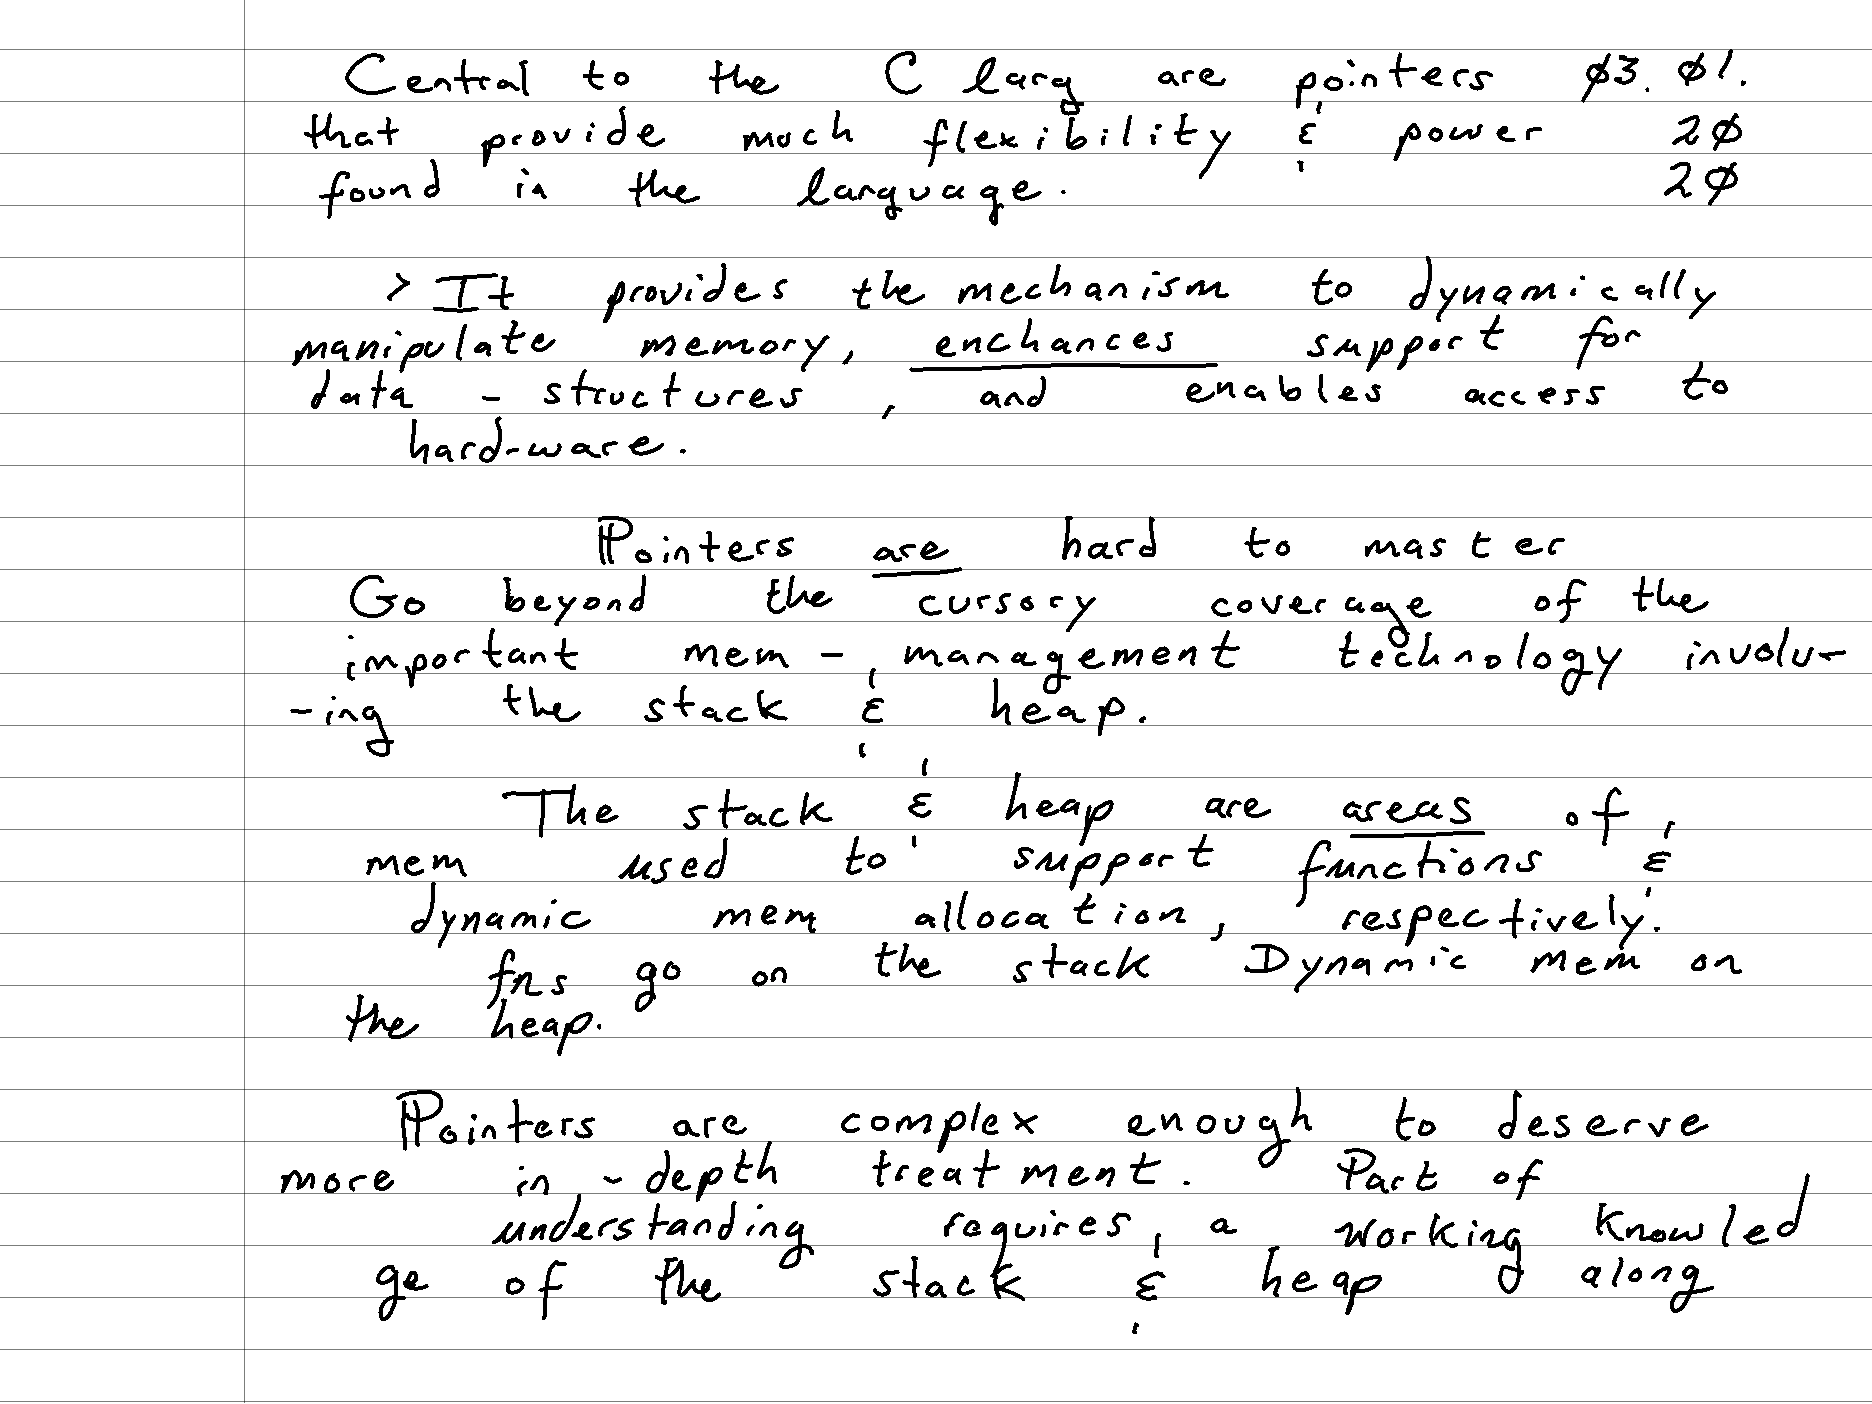 Central to the C lang are pointers ø3. ø1.
that provide much flexibility & power 2ø
found in the language. 2ø
> It provides the mechanism to dynamically
manipulate memory, enchances support for
data - structures, and enables access to
hard-ware.
Pointers are hard to master
Go beyond the cursory coverage of the
important mem - management technology involv-
-ing the stack & heap.
The stack & heap are areas of
mem used to support functions &
dynamic mem allocation, respectively.
fns go on the stack Dynamic mem on
the heap.
Pointers are complex enough to deserve
more in - depth treatment. Part of
understanding requires a working knowled
ge of the stack & heap along